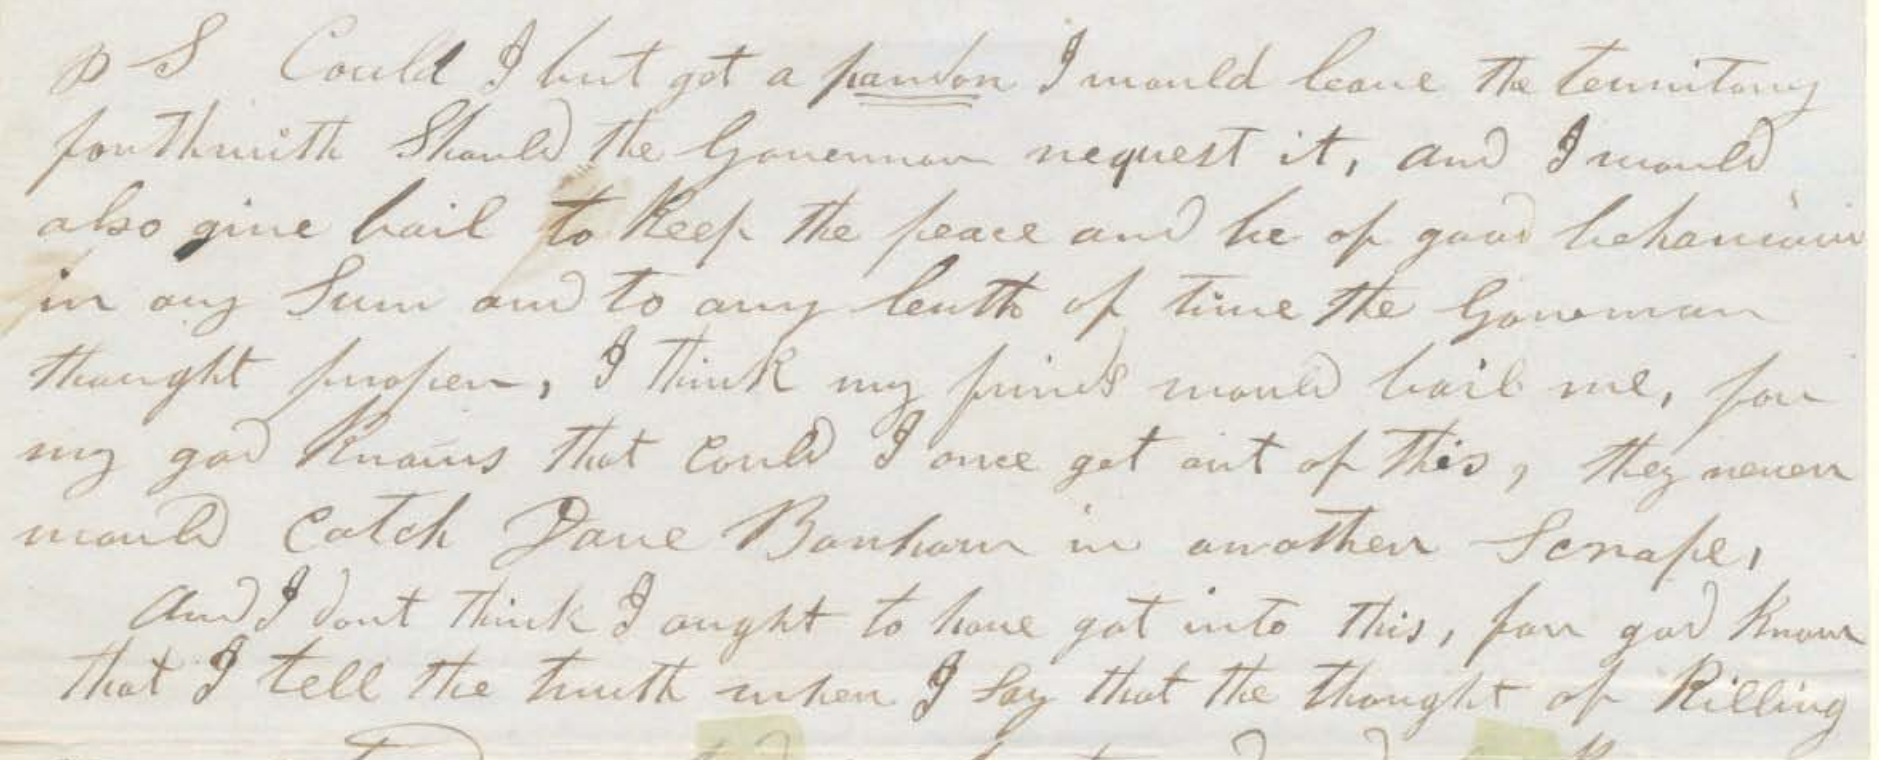 P S Could I but get a pardon I would leave the territory
forthwith Should the Governor request it, and I would
also give bail to Keep the peace and be of good behaviour
in any Sum and to any lenth of time the Governor
thought proper, I think my frinds would bail me, for
my god Knows that Could I once get out of this, they never
would Catch Dave Bonham in another Scrape,
And I dont think I ought to have got into this, for god Know
that I tell the truth when I Say that the thought of Killing